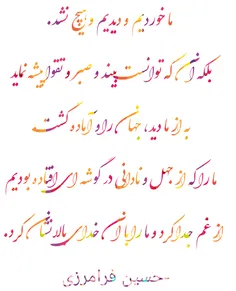 ما خوردیم و دیدیم و هیچ نشد.
بلکه آن که توانست بیند و صبر و تقوا پیشه نماید
به از ما دید، جهان را و آماده گشت
ما را که از جهل و نادانی در گوشه ای افتاده بودیم
از غم جدا کرد و ما را با آن خدای بالا نشان کرد.
-حسین فرامرزی